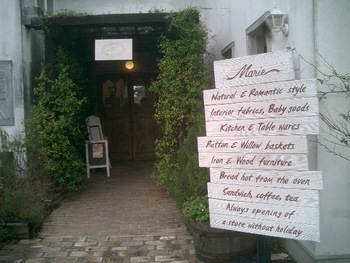 Marie
Natural & Romantic style
Interior fabrics, Baby goods
Kitchen & Table wares
Rattan & Willow baskets
Iron & Wood furniture
Bread hot from the oven
Sandwich, coffee, tea
Always opening of
a store without holiday